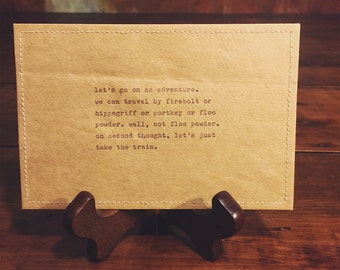 let's go on an adventure.
we can travel by firebolt or
hippogriff or portkey or floo
powder. well, not floo powder.
on second thought, let's just
take the train.